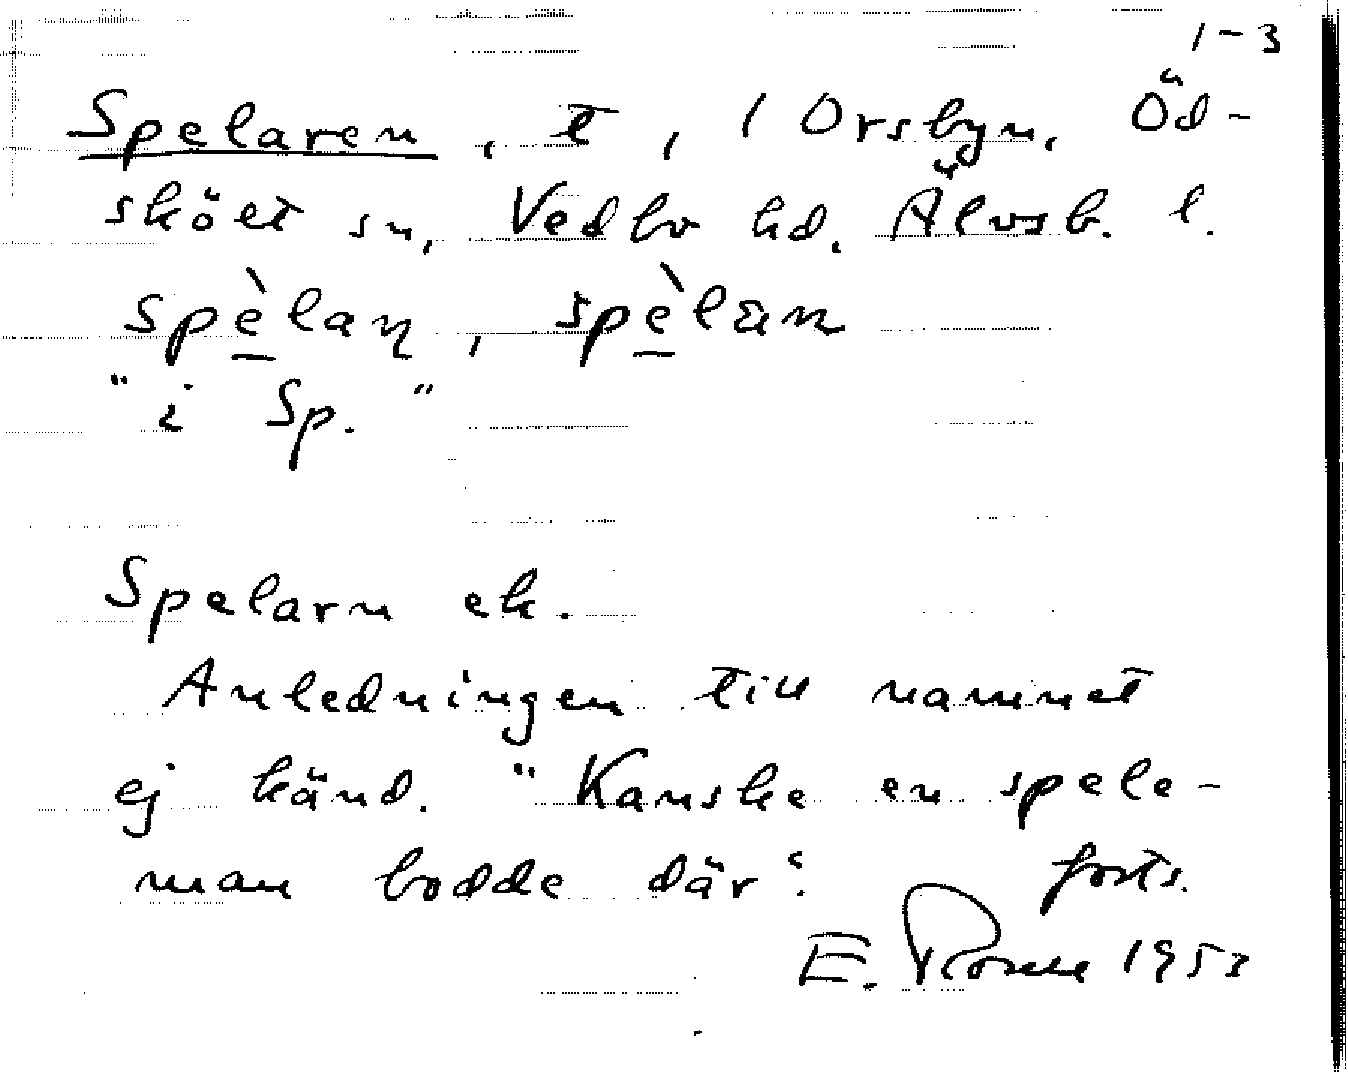 1-3
Spelaren, t, 1 Orsbyn, Öd-
skölt sn, Vedbo hd. Älvsb. l.
spèlaɳ, spèlan
"i Sp."
Spelarn ek.
Anledningen till namnet
ej känd. "Kanske en spele-
man bodde där". forts.
E. 1953